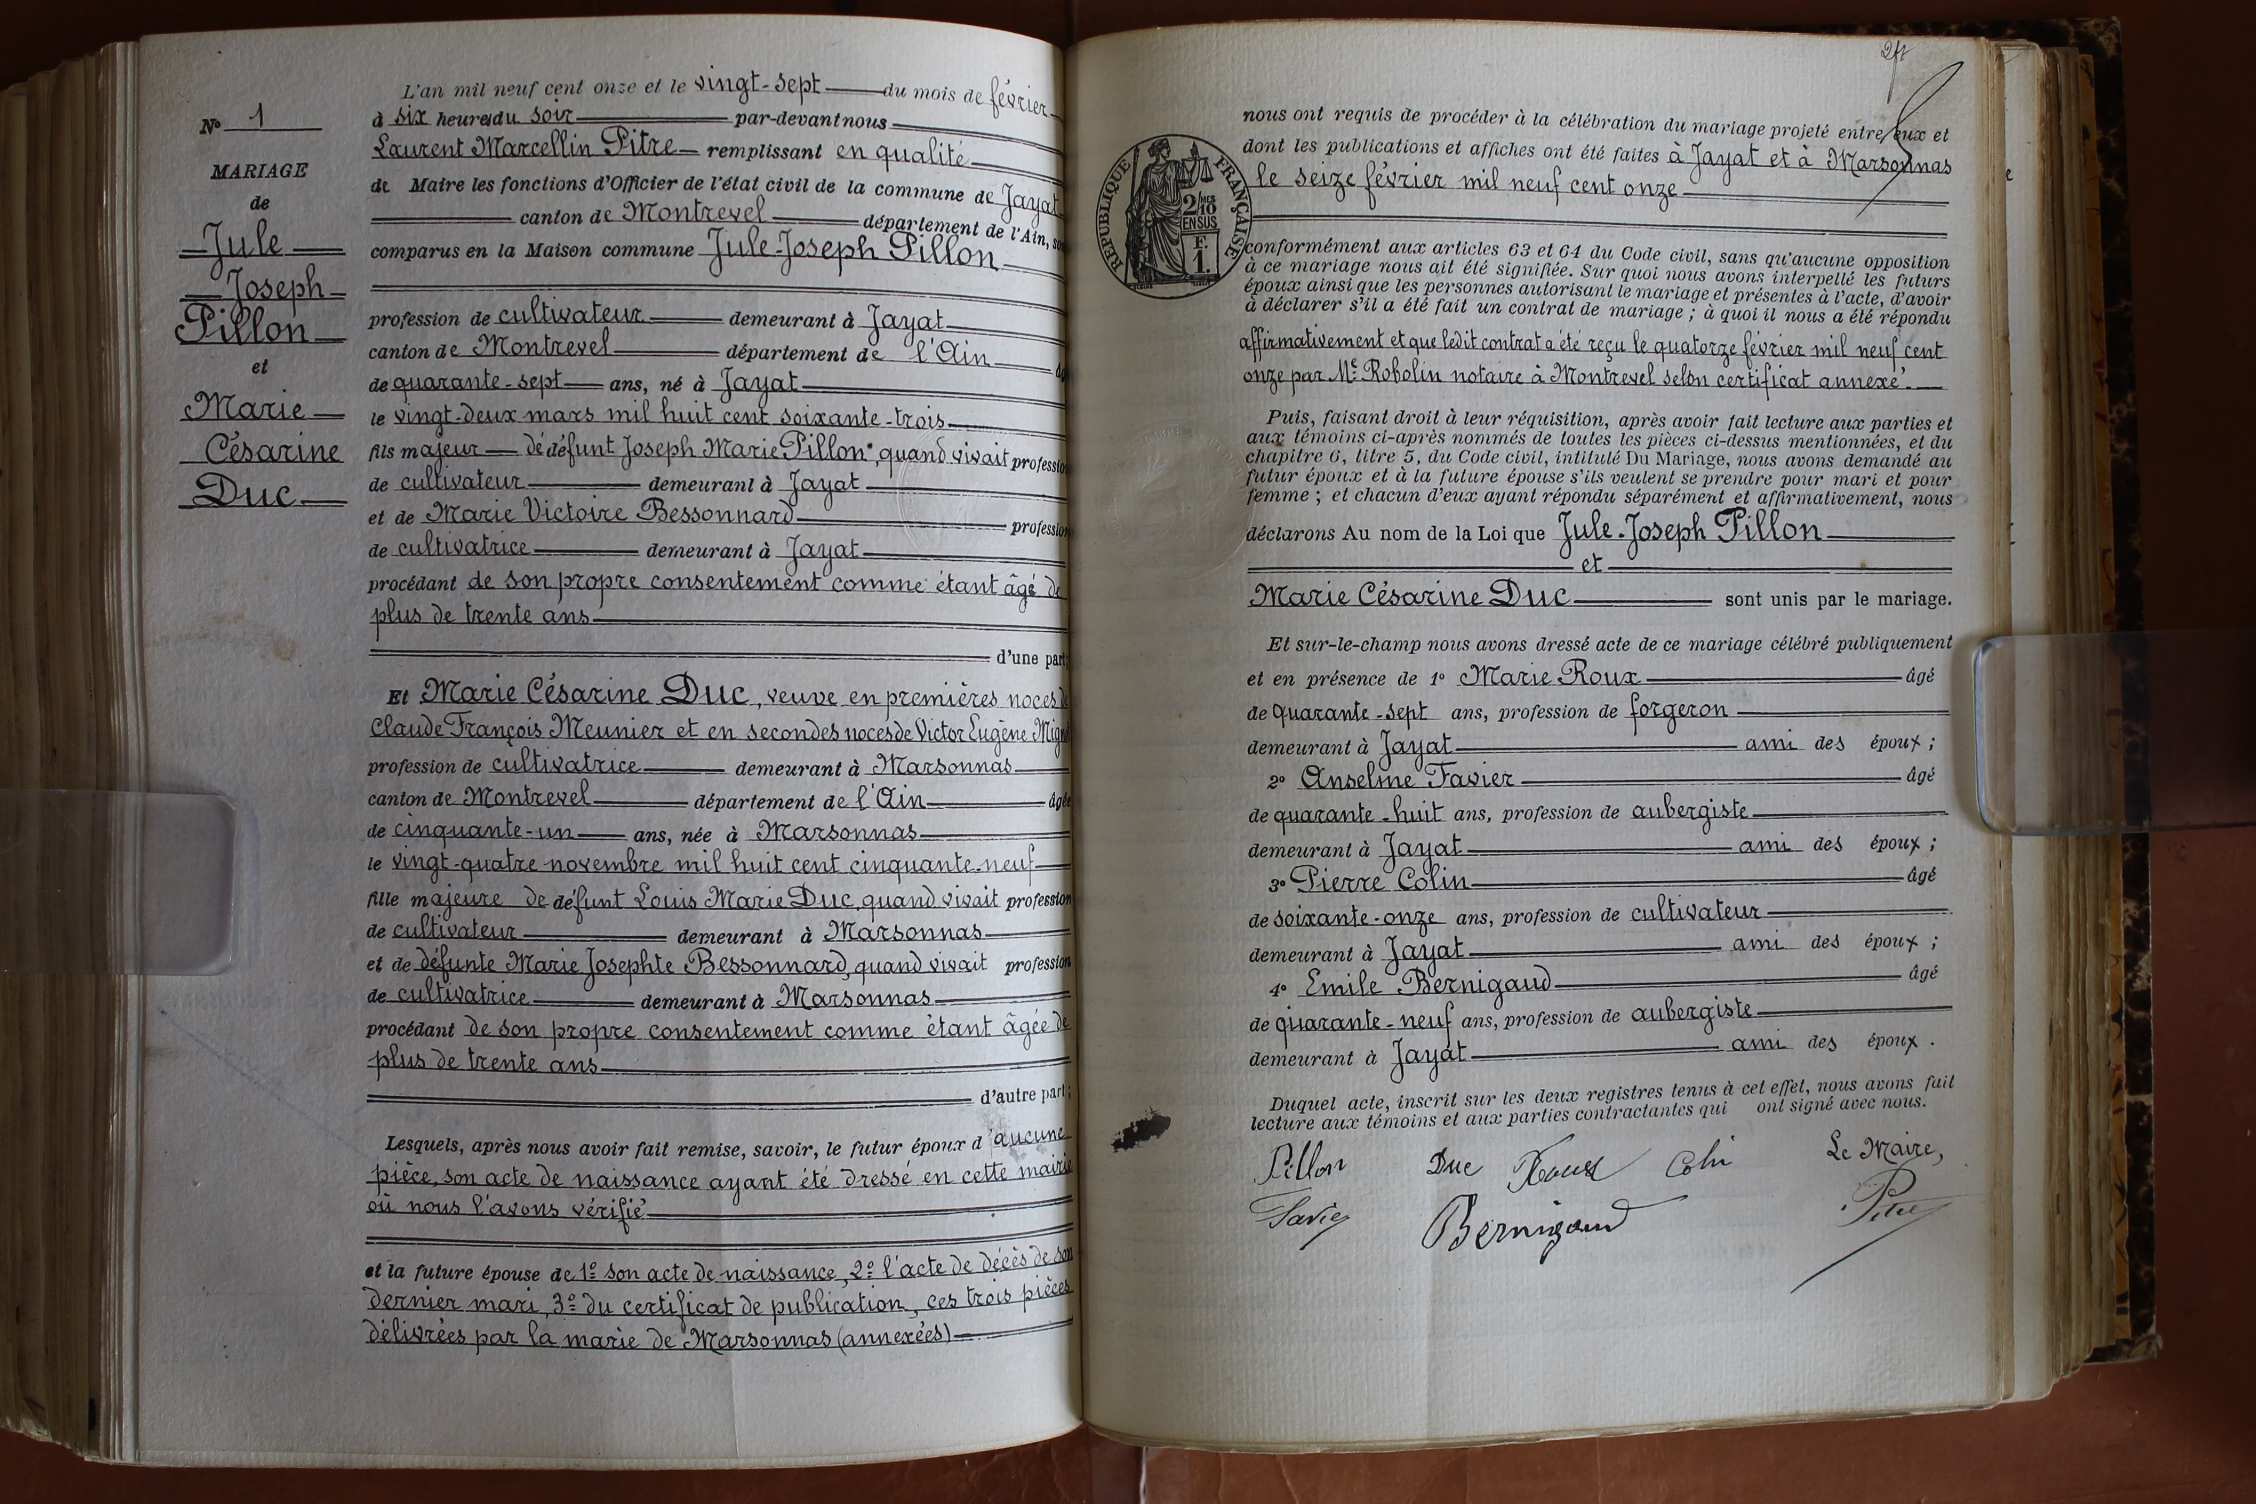 N° 1
MARIAGE
de
Jule
Joseph
Pillon
et
Marie
Césarine
Duc
L'an mil neuf cent onze et le vingt-sept du mois de février
à six heures du soir par-devant nous
Laurent Marcellin Pitre remplissant en qualité
de Maire les fonctions d'Officier de l'état civil de la commune de Jayat
canton de Montrevel département de l'Ain, so
comparus en la Maison commune Jule-Joseph Pillon
profession de cultivateur demeurant à Jayat
canton de Montrevel département de l'Ain âg
de quarante-sept ans, né à Jayat
le vingt-deux mars mil huit cent soixante-trois
fils majeur de défunt Joseph Marie Pillon, quand vivait profession
de cultivateur demeurant à Jayat
et de Marie Victoire Bessonnard profession
de cultivatrice demeurant à Jayat
procédant de son propre consentement comme étant âgé de
plus de trente ans
d'une part;
Et Marie Césarine Duc, veuve en premières noces de
Claude François Meunier et en secondes noces de Victor Eugène
profession de cultivatrice demeurant à Marsonnas
canton de Montrevel département de l'Ain âgée
de cinquante-un ans, née à Marsonnas
le vingt-quatre novembre mil huit cent cinquante-neuf
fille majeure de défunt Louis Marie Duc, quand vivait profession
de cultivateur demeurant à Marsonnas
et de défunte Marie Josephte Bessonnard, quand vivait profession
de cultivatrice demeurant à Marsonnas
procédant de son propre consentement comme étant âgée de
plus de trente ans
d'autre part;
Lesquels, après nous avoir fait remise, savoir, le futur époux d'aucune
pièce, son acte de naissance ayant été dressé en cette mairie
où nous l'avons vérifié
et la future épouse de 1° son acte de naissance, 2° l'acte de décès de son
dernier mari, 3° du certificat de publication, ces trois pièces
délivrées par la marie de Marsonnas (annexées)
RÉPUBLIQUE FRANÇAISE
2/10 MES
EN SUS
F.
1.
nous ont requis de procéder à la célébration du mariage projeté entre eux et
dont les publications et affiches ont été faites à Jayat et à Marsonnas
le seize février mil neuf cent onze
conformément aux articles 63 et 64 du Code civil, sans qu'aucune opposition
à ce mariage nous ait été signifiée. Sur quoi nous avons interpellé les futurs
époux ainsi que les personnes autorisant le mariage et présentes à l'acte, d'avoir
à déclarer s'il a été fait un contrat de mariage; à quoi il nous a été répondu
affirmativement et que ledit contrat a été reçu le quatorze février mil neuf cent
onze par Me Robolin notaire à Montrevel selon certificat annexé.
Puis, faisant droit à leur réquisition, après avoir fait lecture aux parties et
aux témoins ci-après nommés de toutes les pièces ci-dessus mentionnées, et du
chapitre 6, titre 5, du Code civil, intitulé Du Mariage, nous avons demandé au
futur époux et à la future épouse s'ils veulent se prendre pour mari et pour
femme; et chacun d'eux ayant répondu séparément et affirmativement, nous
déclarons Au nom de la Loi que Jule-Joseph Pillon
et
Marie Césarine Duc sont unis par le mariage.
Et sur-le-champ nous avons dressé acte de ce mariage célébré publiquement
et en présence de 1° Marie Roux âgé
de quarante-sept ans, profession de forgeron
demeurant à Jayat ami des époux;
2° Anselme Favier âgé
de quarante-huit ans, profession de aubergiste
demeurant à Jayat ami des époux;
3° Pierre Colin âgé
de soixante-onze ans, profession de cultivateur
demeurant à Jayat ami des époux;
4° Emile Bernigaud âgé
de quarante-neuf ans, profession de aubergiste
demeurant à Jayat ami des époux.
Duquel acte, inscrit sur les deux registres tenus à cet effet, nous avons fait
lecture aux témoins et aux parties contractantes qui ont signé avec nous.
Pillon Duc Roux Colin Le Maire,
Favier Bernigaud Pitre